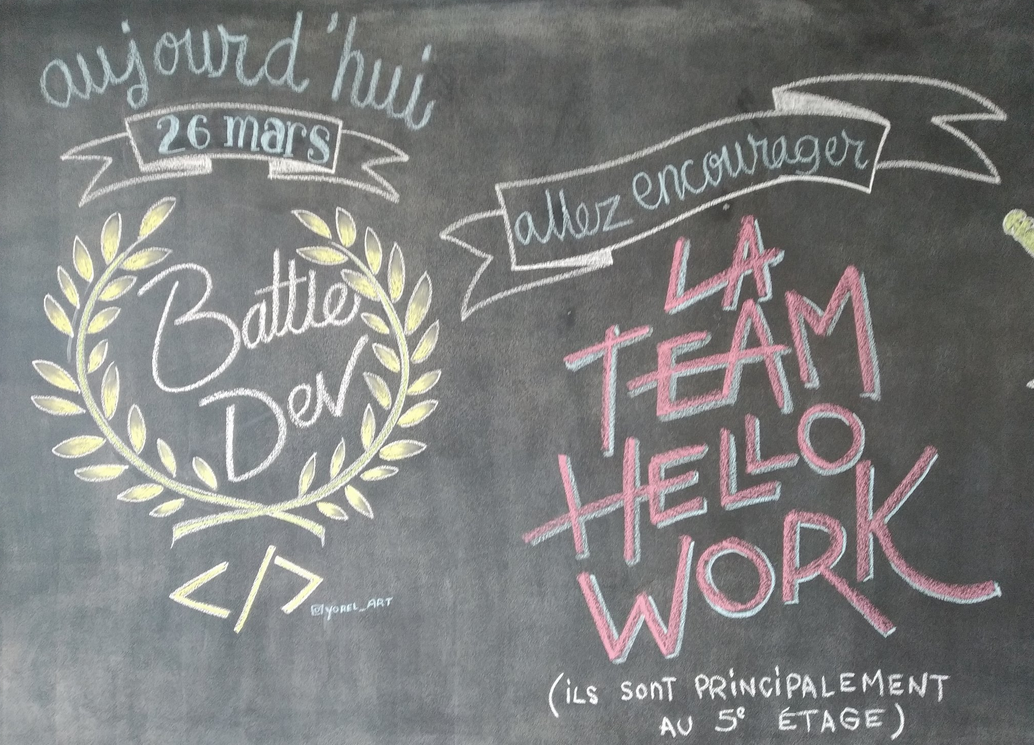 aujourd'hui
26 mars
Battle
Dev
</>
@YOREL_ART
allez encourager
LA
TEAM
HELLO
WORK
(iLS SONT PRiNCiPALEMENT
AU 5e ÉTAGE)